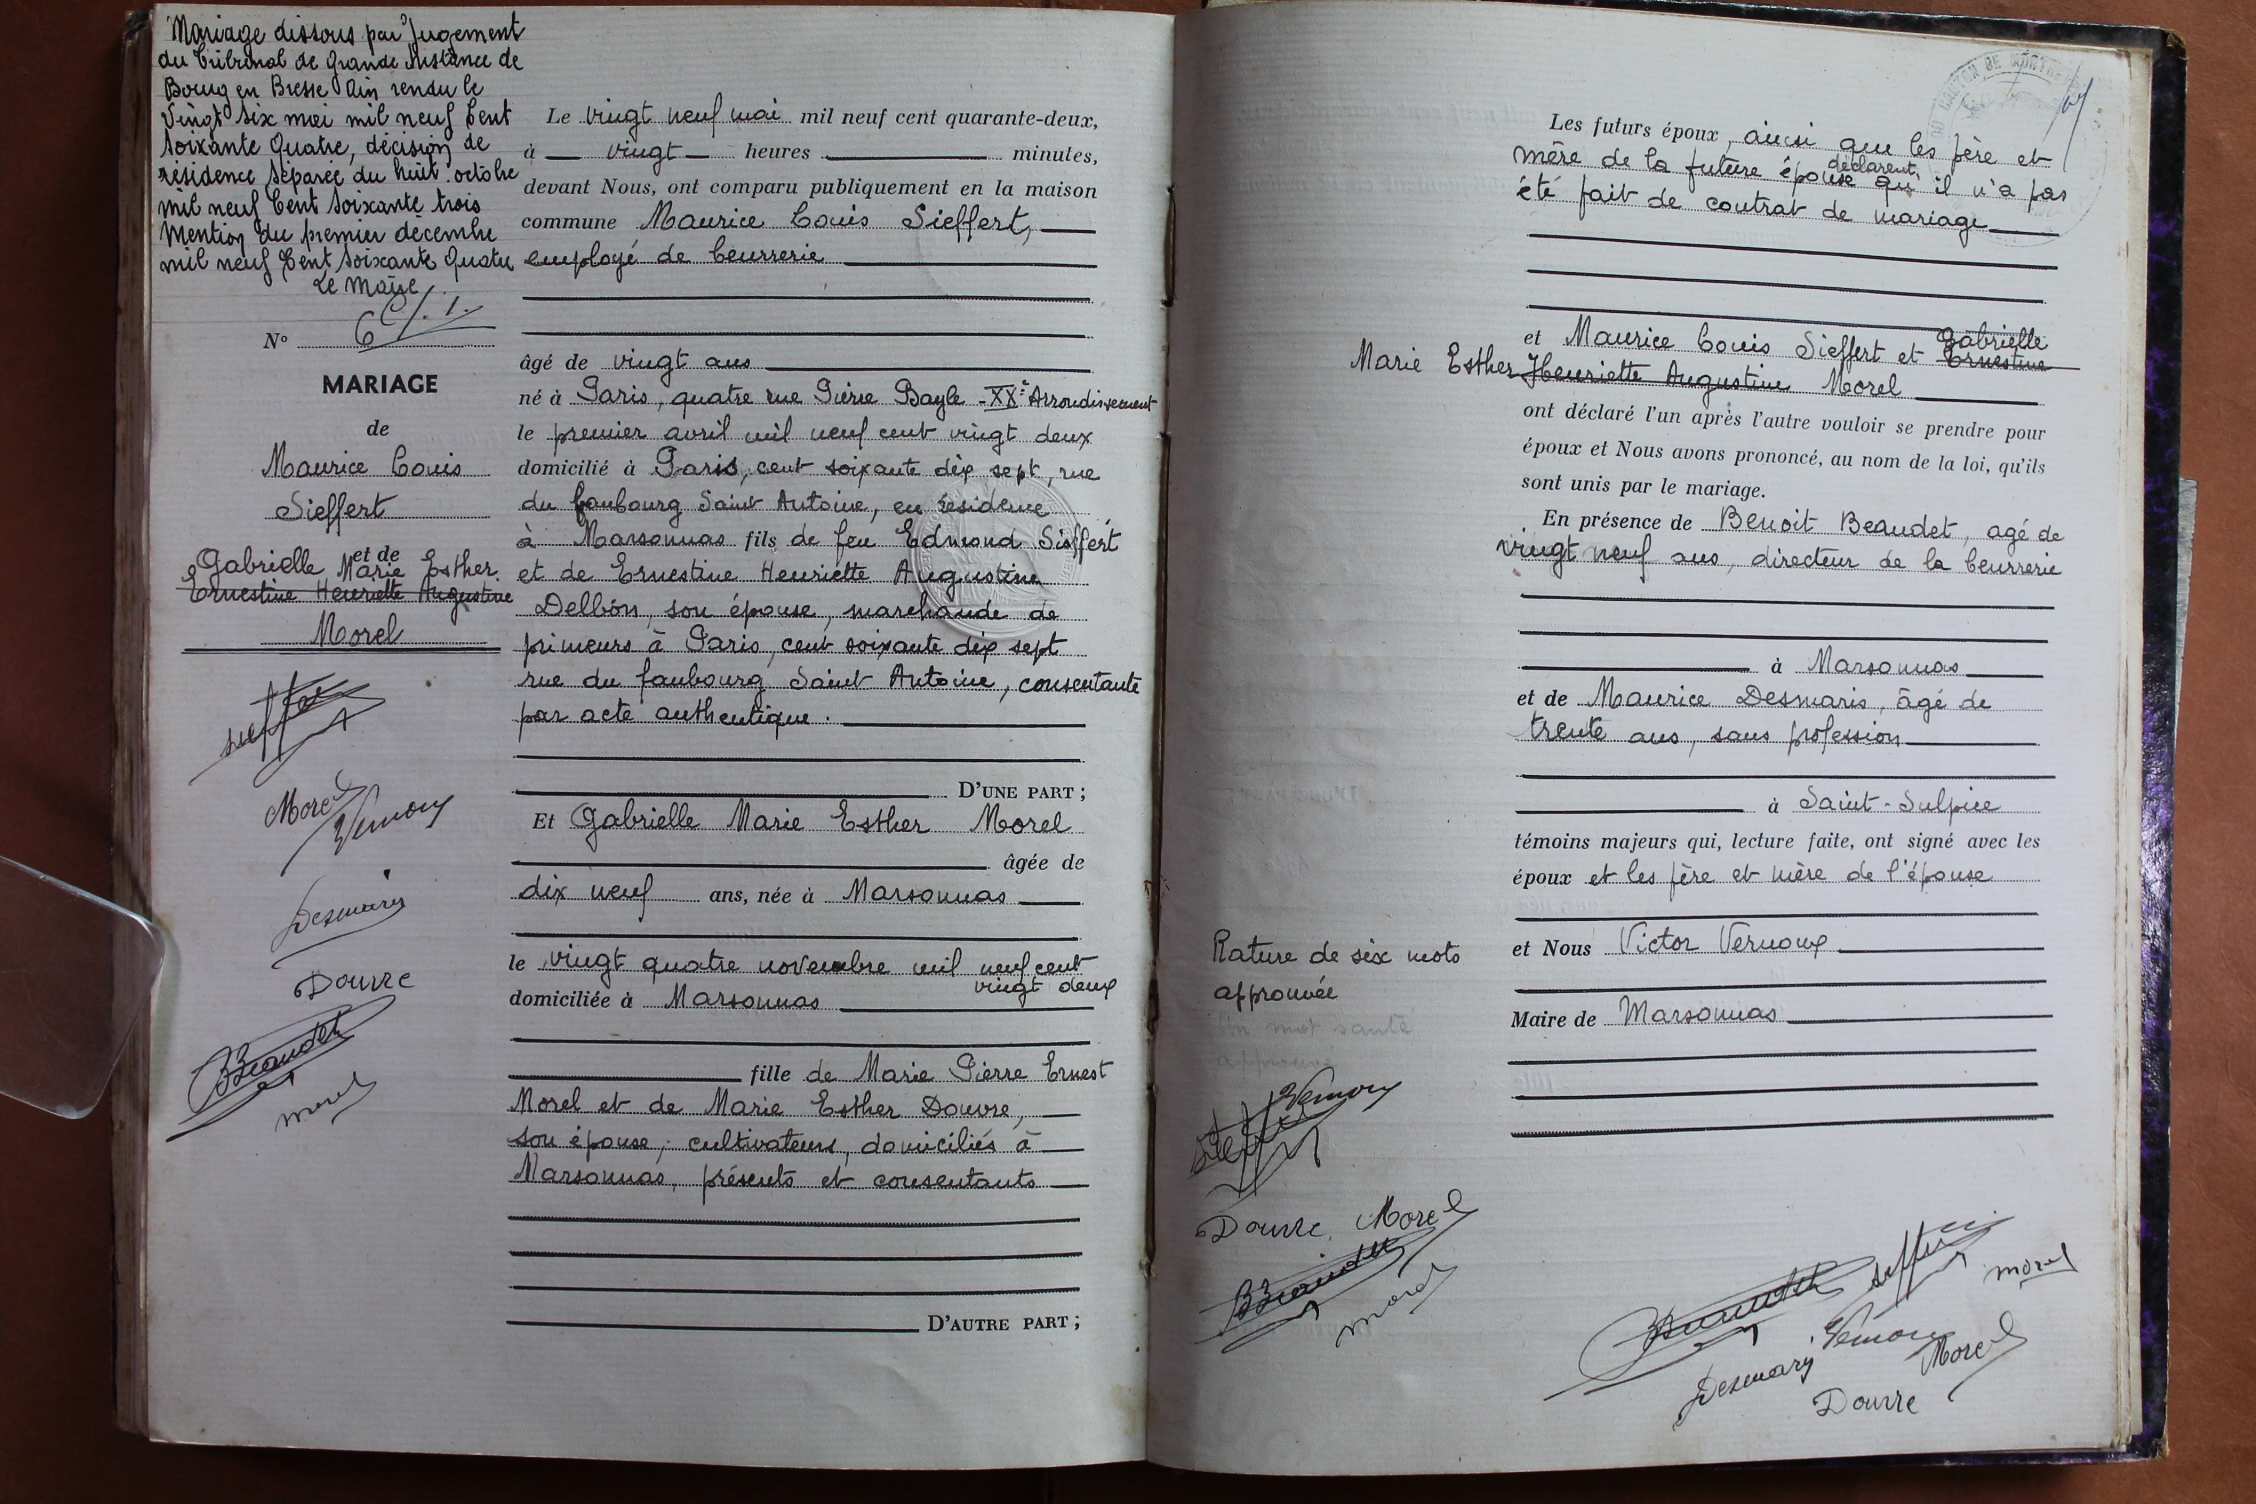 Mariage dissous par Jugement
du Tribunal de Grande Instance de
Bourg en Bresse Ain rendu le
Vingt six mai mil neuf Cent
Soixante Quatre, décision de
résidence séparée du huit octobre
mil neuf Cent Soixante trois
Mention du premier décembre
mil neuf Cent Soixante Quatre
Le Maire
N° 6
MARIAGE
de
Maurice Louis
Sieffert
et de
Gabrielle Marie Esther
Ernestine Henriette Augustine
Morel
Morel
Vernoux
Desmaris
Douvre
Beaudet
Morel
Le vingt neuf mai mil neuf cent quarante-deux,
à vingt heures minutes,
devant Nous, ont comparu publiquement en la maison
commune Maurice Louis Sieffert,
employé de beurrerie
âgé de vingt ans
né à Paris, quatre rue Pierre Bayle - XXe Arrondissement
le premier avril mil neuf cent vingt deux
domicilié à Paris, cent soixante dix sept, rue
du faubourg Saint Antoine, en résidence
à Marsonnas fils de feu Edmond Sieffert
et de Ernestine Henriette Augustine
Delbon, son épouse, marchande de
primeurs à Paris, cent soixante dix sept
rue du faubourg Saint Antoine, consentante
par acte authentique.
D'UNE PART ;
Et Gabrielle Marie Esther Morel
âgée de
dix neuf ans, née à Marsonnas
le vingt quatre novembre mil neuf cent
vingt deux
domiciliée à Marsonnas
fille de Marie Pierre Ernest
Morel et de Marie Esther Douvre,
son épouse, cultivateurs, domiciliés à
Marsonnas, présents et consentants
D'AUTRE PART ;
Les futurs époux, ainsi que les père et
mère de la future épouse déclarent qu'il n'a pas
été fait de contrat de mariage
et Maurice Louis Sieffert et Gabrielle
Ernestine
Marie Esther Henriette Augustine Morel
ont déclaré l'un après l'autre vouloir se prendre pour
époux et Nous avons prononcé, au nom de la loi, qu'ils
sont unis par le mariage.
En présence de Benoit Beaudet, agé de
vingt neuf ans, directeur de la beurrerie
à Marsonnas
et de Maurice Desmaris, âgé de
trente ans, sans profession
à Saint-Sulpice
témoins majeurs qui, lecture faite, ont signé avec les
époux et les père et mère de l'épouse
et Nous Victor Vernoux
Maire de Marsonnas
Rature de six mots
approuvée
Un mot sauté
approuvé
Vernoux
Douvre Morel
Beaudet
Morel
Beaudet Sieffert Morel
Desmaris Vernoux Morel
Douvre